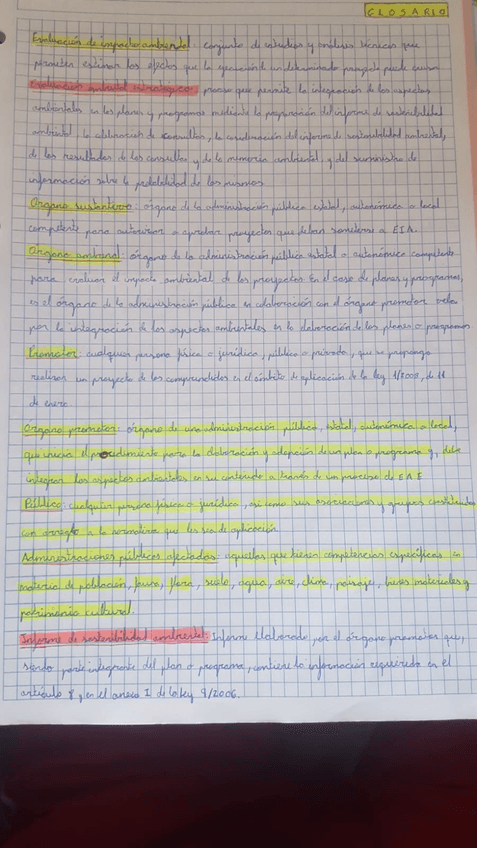 GLOSARIO
Evaluación de impacto ambiental: conjunto de estudios y análisis técnicos que
permiten estimar los efectos que la ejecución de un determinado proyecto puede causar
Evaluación ambiental estratégica: proceso que permite la integración de los aspectos
ambientales en los planes y programas mediante la preparación del informe de sostenibilidad
ambiental, la celebración de consultas, la consideración del informe de sostenibilidad ambiental,
de los resultados de las consultas y de la memoria ambiental, y del suministro de
información sobre la de los mismos
Organo sustantivo: órgano de la administración pública estatal, autonómica o local
competente para autorizar o aprobar proyectos que deban someterse a EIA.
Organo ambiental: órgano de la administración pública estatal o autonómica competente
para evaluar el impacto ambiental de los proyectos. En el caso de planes y programas,
es el órgano de la administración pública en colaboración con el órgano promotor vela
por la integración de los aspectos ambientales en la elaboración de los planes o programas
Promotor: cualquier persona física o jurídica, pública o privada, que se proponga
realizar un proyecto de los comprendidos en el ámbito de aplicación de la ley 1/2008, de 11
de enero.
Organo promotor: órgano de una administración pública, estatal, autonómica o local,
que inicia el procedimiento para la elaboración y adopción de un plan o programa y, debe
integrar los aspectos ambientales en su contenido a través de un proceso de EAE
Público: cualquier persona física o jurídica, así como sus asociaciones y grupos constituidos
con arreglo a la normativa que les sea de aplicación.
Administraciones públicas afectadas: aquellas que tienen competencias específicas en
materia de población, fauna, flora, suelo, agua, aire, clima, paisaje, bienes materiales y
patrimonio cultural.
Informe de sostenibilidad ambiental: Informe elaborado, por el órgano promotor que,
siendo parte integrante del plan o programa, contiene la información requerida en el
artículo y en el anexo I de la ley 9/2006.